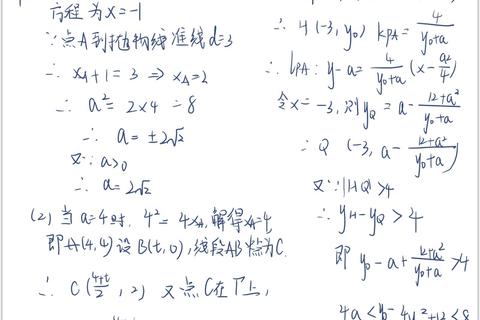 方程为x=-1
∵点A到抛物线准线d=3
∴ xA+1=3 ⇒ xA=2
∴ a²=2×4=8
∴ a=±2√2
又∵a>0
∴ a=2√2
(2) 当a=4时, 4²=4xA,解得xA=4
即A(4,4) 设B(t,0),线段AB 为C.
∴ C(\frac{4+t}{2}, 2) 又点C在Γ上,
∴ H(-3, y₀) kPA=\frac{4}{y₀+a}
∴ lPA: y-a=\frac{4}{y₀+a}(x-\frac{a²}{4})
令x=-3,则yQ=a-\frac{12+a²}{y₀+a}
∴ Q (-3, a-\frac{12+a²}{y₀+a})
又∵|HQ|>4
∴ yH-yQ>4
即 y₀-a+\frac{12+a²}{y₀+a}>4